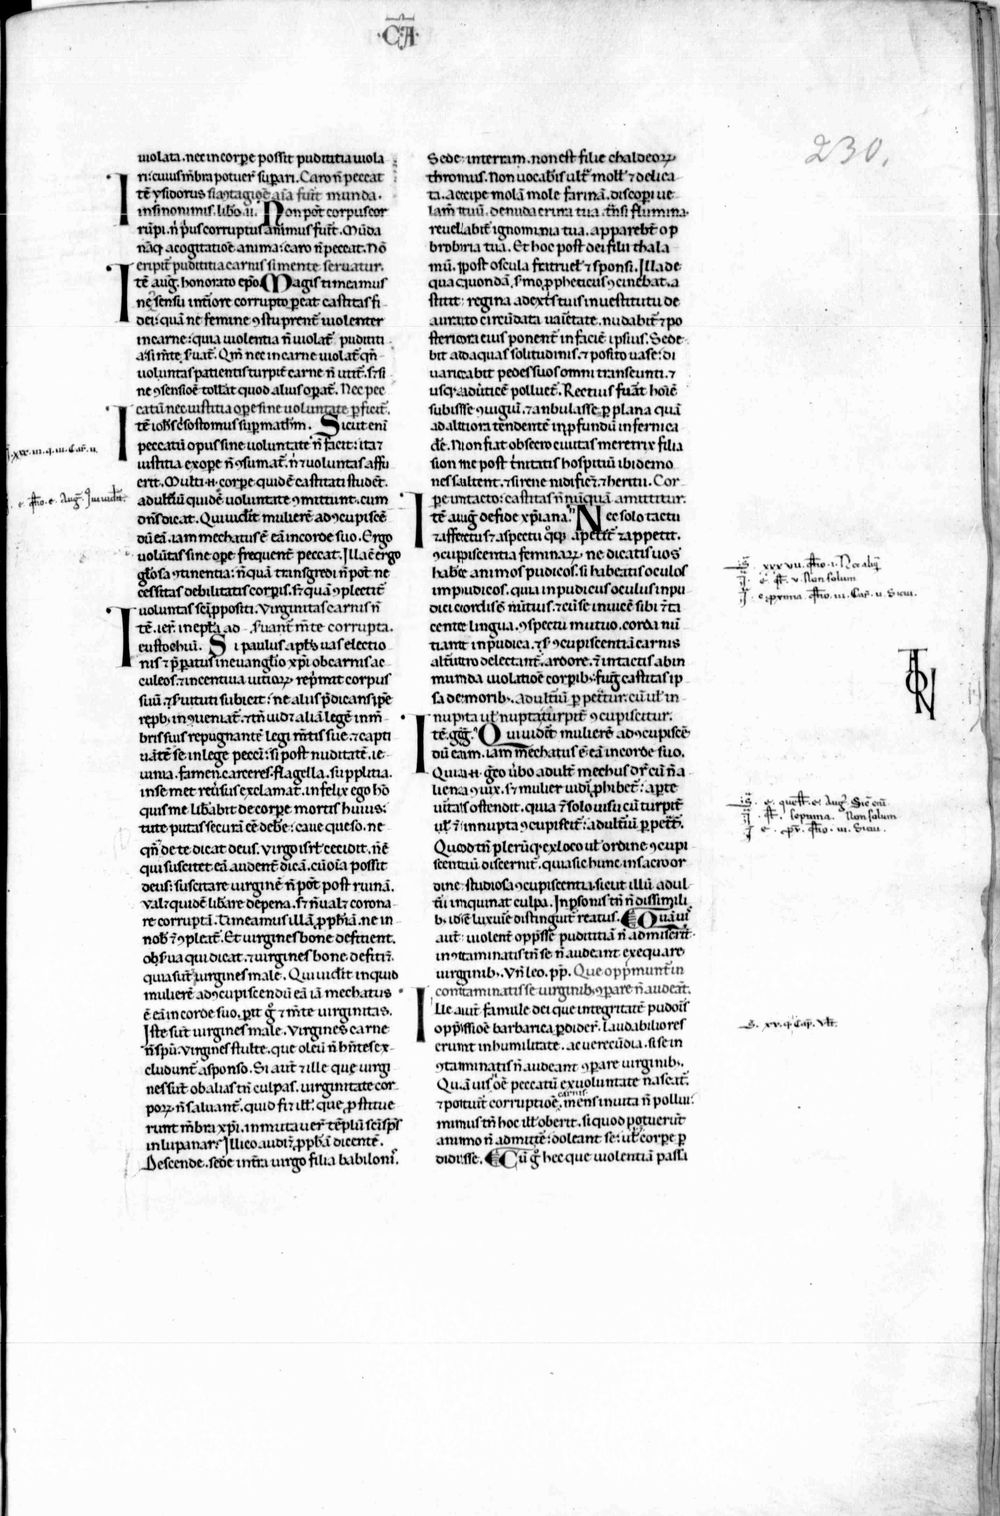 ·CA·
230.
uiolata. nec incorpe possit pudititia uiola
ri: cuius mbra potuer supari. Caro n peccat
te ysidorus si 9tagioe aia fuit munda.
insinonimis. libo .ii. Non pot corpus cor
rupi. n pus corruptus animus fuit. Muda
naq; a cogitatioe anima: caro n peccat. No
eripit pudititia carnis si mente seruatur.
te aug. honorato epo. Magis timeamus
ne sensu intiore corrupto peat castitas fi
dei: qua ne femine 9stuprent uiolenter
in carne: quia uiolentia n uiolat pudititi
a si mte suat. Qm nec in carne uiolat qn
voluntas patientis turpit carne n utit. s; si
ne 9sensioe tollat quod alius opat. Nec pec
catu nec iustitia ope sine uoluntate pficit.
te ioh's c'sostomus sup matheum. Sicut eni
peccatu opus sine uoluntate n facit: ita 7
iustitia ex ope n 9sumat. n 7 uoluntas affu
erit. Multi .n. corpe quide castitati student.
adulteiu quide uoluntate 9mittunt. cum
dns dicat. Qui uidit muliere ad 9cupisce
du ea. iam mechatus e ea in corde suo. Ergo
uolutas sine ope frequent peccat. Illa e ergo
gl'osa 9tinentia: n qua transgredi n pot ne
cessitas debilitatis corpis. s; qua 9plectit
uoluntas sci ppositi. Virginitas carnis n
te. ier. in epla ad suant mte corrupta.
eustochiu. Si paulus apls uas electio
nis 7 pparatus in euanglio xpi ob carnis ac
culeos. 7 incentiua uitior reprimit corpus
suu. 7 seruituti subicit: ne aliis pdicans ipe
repb; inueniat. 7 tn uid; alia lege in m
bris suis repugnante legi mtis sue. 7 capti
uate se in lege pecci: si post nuditate. ie
iunia. famen. carceres. flagella. supplitia.
in semet reusus exclamat. infelix ego ho
quis me libabit de corpe mortis huius:
tu te putas secura ee debe: caue queso. ne
qn de te dicat deus. virgo isrl' cecidit. n e
qui suscitet ea. audent dica. cu oia possit
deus: suscitare uirgine n pot post ruina.
valz quide libare de pena. s; n ualz corona
re corrupta. Timeamus illa pphia. ne in
nob 7 9pleat. Et uirgines bone deficient.
obsua qui dicat. 7 uirgines bone deficit.
quia sut uirgines male. Qui uidit inquid
muliere ad 9cupiscendu ea ia mechatus
e ea in corde suo. pit g 7 mte virginitas.
Iste sut uirgines male. virgines carne
n spu. virgines stulte. que oleu n hntes ex
cludunt a sponso. Si aut 7 ille que uirgi
nes sut ob alias tn culpas. uirginitate cor
por n saluant. quid fiet illis. que pstitue
runt mbra xpi. 7 mutauer teplu sci sps
in lupanar? Illico audiet pphia dicente.
Descende. sede in tra uirgo filia babilonis.
Sede in terram. non est filie chaldeor
thronus. Non uocabis ultra mollis 7 delica
ta. accipe mola mole farina. discopi ue
lam tuu. denuda crura tua. tnsi flumina.
reuelabit ignominia tua. apparebit op
probria tua. Et hoc post dei filii thala
mu. post oscula fratruel 7 sponsi. Illa de
qua quonda s'mo ppheticus 9cinebat. a
stitit regina a dext'is tuis in uestitu de
aurato circudata uarietate. nudabit 7 po
steriora eius ponent in facie ipsius. Sede
bit ad aquas solitudinis. 7 posito uase di
uaricabit pedes suos omni transeunti. 7
usq; ad utice polluet. Rectius fuat hoie
subisse 9iugiu. 7 ambulasse p plana qua
ad altiora tendente in pfundu inferni ca
de. Non fiat obsecro ciuitas meretrix filia
sion ne post trinitatis hospitiu ibi demo
nes saltent. 7 sirene nidificet 7 heritii. Cor-
pe intacto: castitas n nuqua amittitur.
te aug de fide xpiana. Nec solo tactu
7 affectu s; aspectu qq; apetit 7 appetit.
9cupiscentia feminar. ne dicatis uos
habere animos pudicos. si habeatis oculos
impudicos. quia inpudicus oculus inpu
dici cordis e nutius. 7 cu se inuice sibi 7 ta
cente lingua. 9spectu mutuo. corda nu
tiant inpudica. 7 s; 9cupiscentia carnis
altutro delectant. ardore. 7 intactis ab in
munda uiolatioe corpib; fugit castitas ip
sa de morib;. adulteiu p pettur. cu ul' in
nupta ul' nupta turpit 9cupiscitur.
te. gg. Qui uidit muliere ad 9cupisce
du eam. iam mechatus e ea in corde suo.
Quia .n. greco ubo adulter mechus dr cu n a
liena 9iux. s; mulier uideri phibet: apte
ueritas ostendit. quia 7 solo uisu cu turpit
ul' 7 innupta 9cupiscit: adulteiu p pett.
Quod tn pleruq; ex loco ul' ordine 9cupi
scentiu discernit. quia sic hunc in sacro or
dine studiosa 9cupiscentia. sicut illu adul
tii inquinat culpa. In psonis tn n dissimili
b; ide luxuie distinguit reatus. Quauis
aut uiolent oppsse pudititia n admiserit
in9taminatis tn se n audeant exequare
uirginib;. Vn leo. pp. Que opprimunt in
contaminatis se uirginib; 9pare n audeat.
Ille aut famule dei que integritate pudoris
oppssioe barbarica pdider. laudabiliores
erunt in humilitate. ac uerecudia. si se in
9taminatis n audeant 9pare uirginib;.
Quauis oe peccatu ex uoluntate nascat.
7 potuit corruptioe carnis mens inuita n pollui:
minus tn hoc illis oberit. si quod potuerut
animo n admitte: doleant se: uel corpe p
didisse. Cu g hec que uiolentia passi